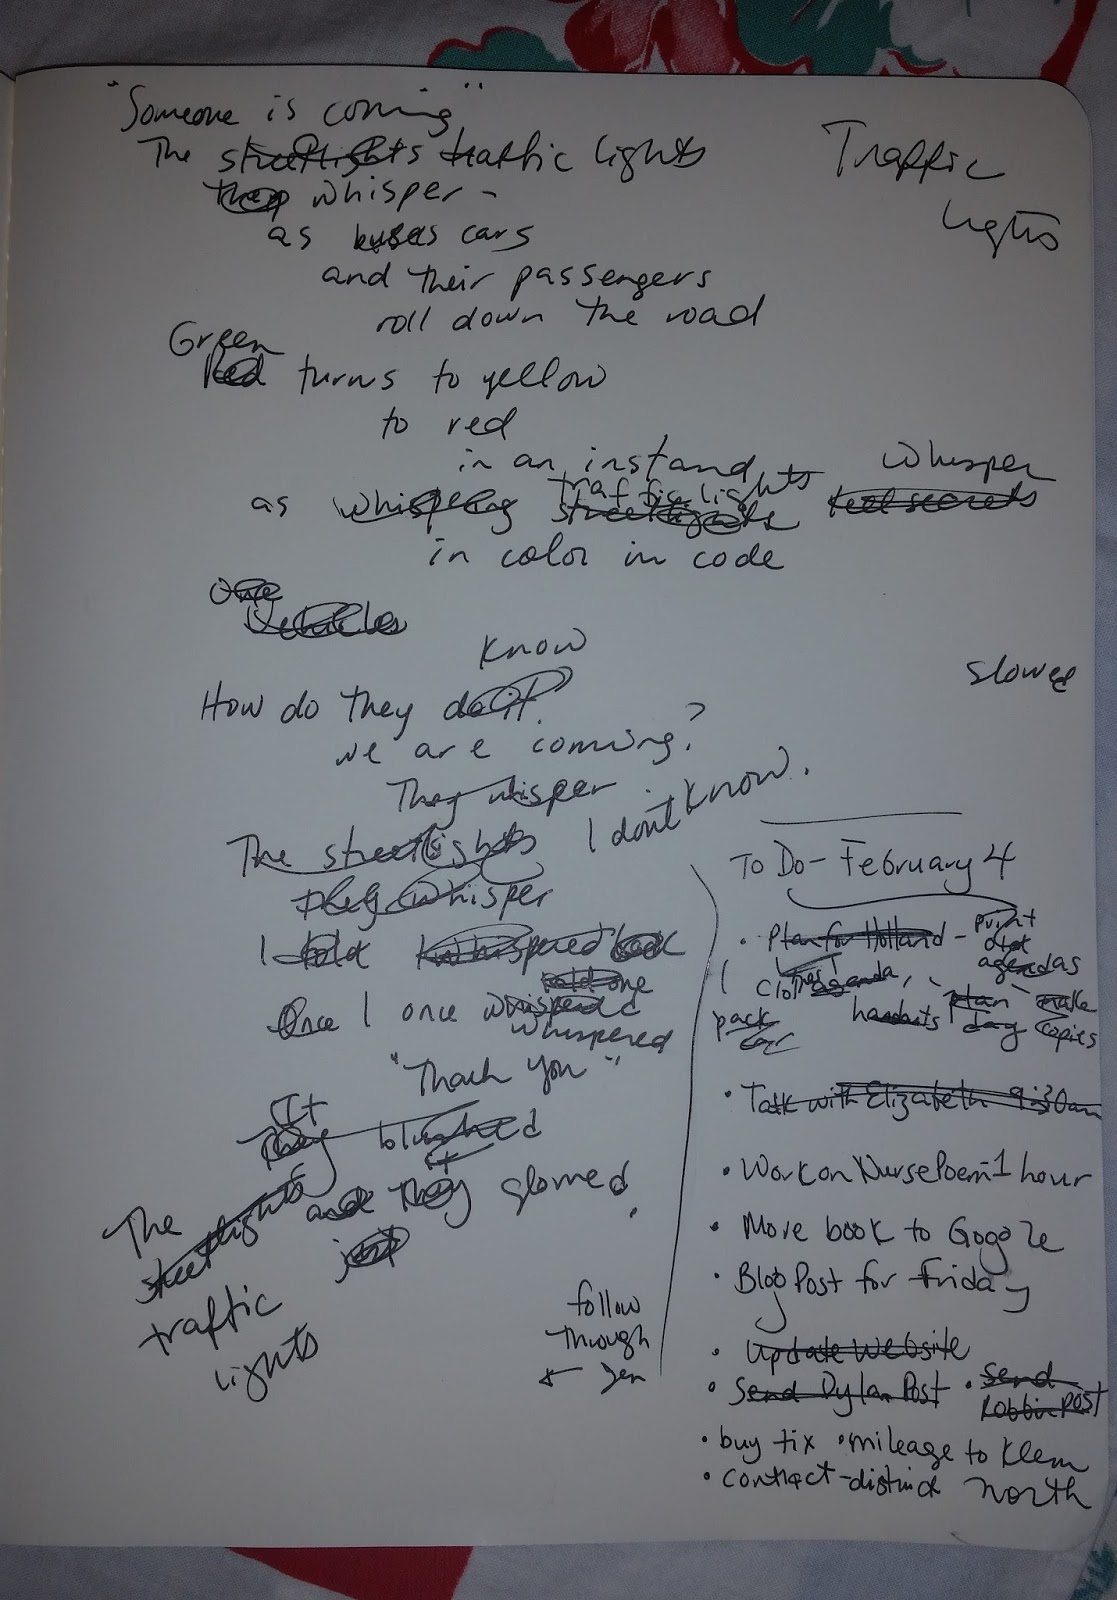 "Someone is coming"
The streetlights traffic lights
they whisper -
as buses cars
and their passengers
roll down the road
Traffic
lights
Green
Red turns to yellow
to red
in an instant
as whispering streetlights traffic lights tell secrets whisper
in color in code
One
Vehicles
know
How do they do it?
we are coming?
They whisper
The streetlights I don't know.
They whisper
I told I whispered back
told one
Once I once whispered
whispered
"Thank you"
It
They blushed
and they glowed
just
The
streetlights
traffic
lights
slowed
follow
through
← Jen
To Do - February 4
• Plan for Holland - print
agendas
agenda,
handouts plan day make copies
pack car
• Talk with Elizabeth 9:30am
• Work on Nurse Poem - 1 hour
• Move book to Google
• Blog Post for Friday
• Update website
• Send Dylan Post • Send Robbin Post
• buy tix • mileage to Klem
• contract - district North